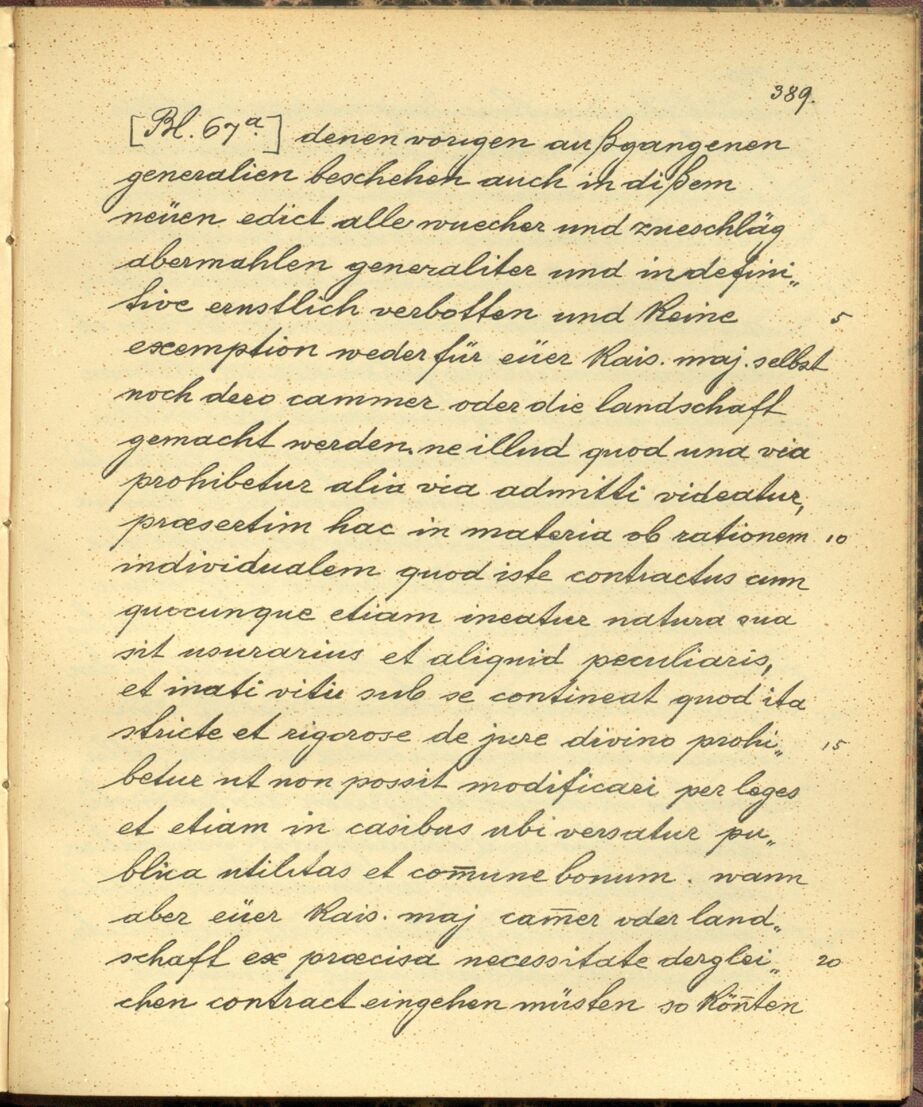 389.
[Bl. 67a.] denen vorigen außgangenen
generalien beschehen auch in dißem
neüen edict alle wuecher und zueschläg
abermahlen generaliter und in defini„
tive ernstlich verbotten und keine 5
exemption weder für eüer kais. maj. selbst
noch dero cammer oder die landschaft
gemacht werden, ne illud quod una via
prohibetur alia via admitti videatur,
præsertim hac in materia ob rationem 10
individualem quod iste contractus cum
quocunque etiam ineatur natura sua
sit usurarius et aliquid peculiaris,
et inati vitii sub se contineat quod ita
stricte et rigorose de jure divino prohi„ 15
betur ut non possit modificari per leges
et etiam in casibus ubi versatur pu„
blica utilitas et com̄une bonum. wann
aber eüer kais. maj cam̄er oder land„
schaft ex præcisa necessitate derglei„ 20
chen contract eingehen müsten so kön̄ten